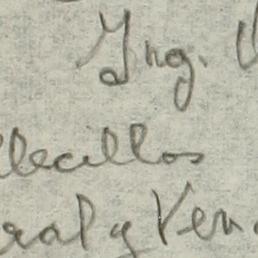 Ing.
llecillos
ral y Ven